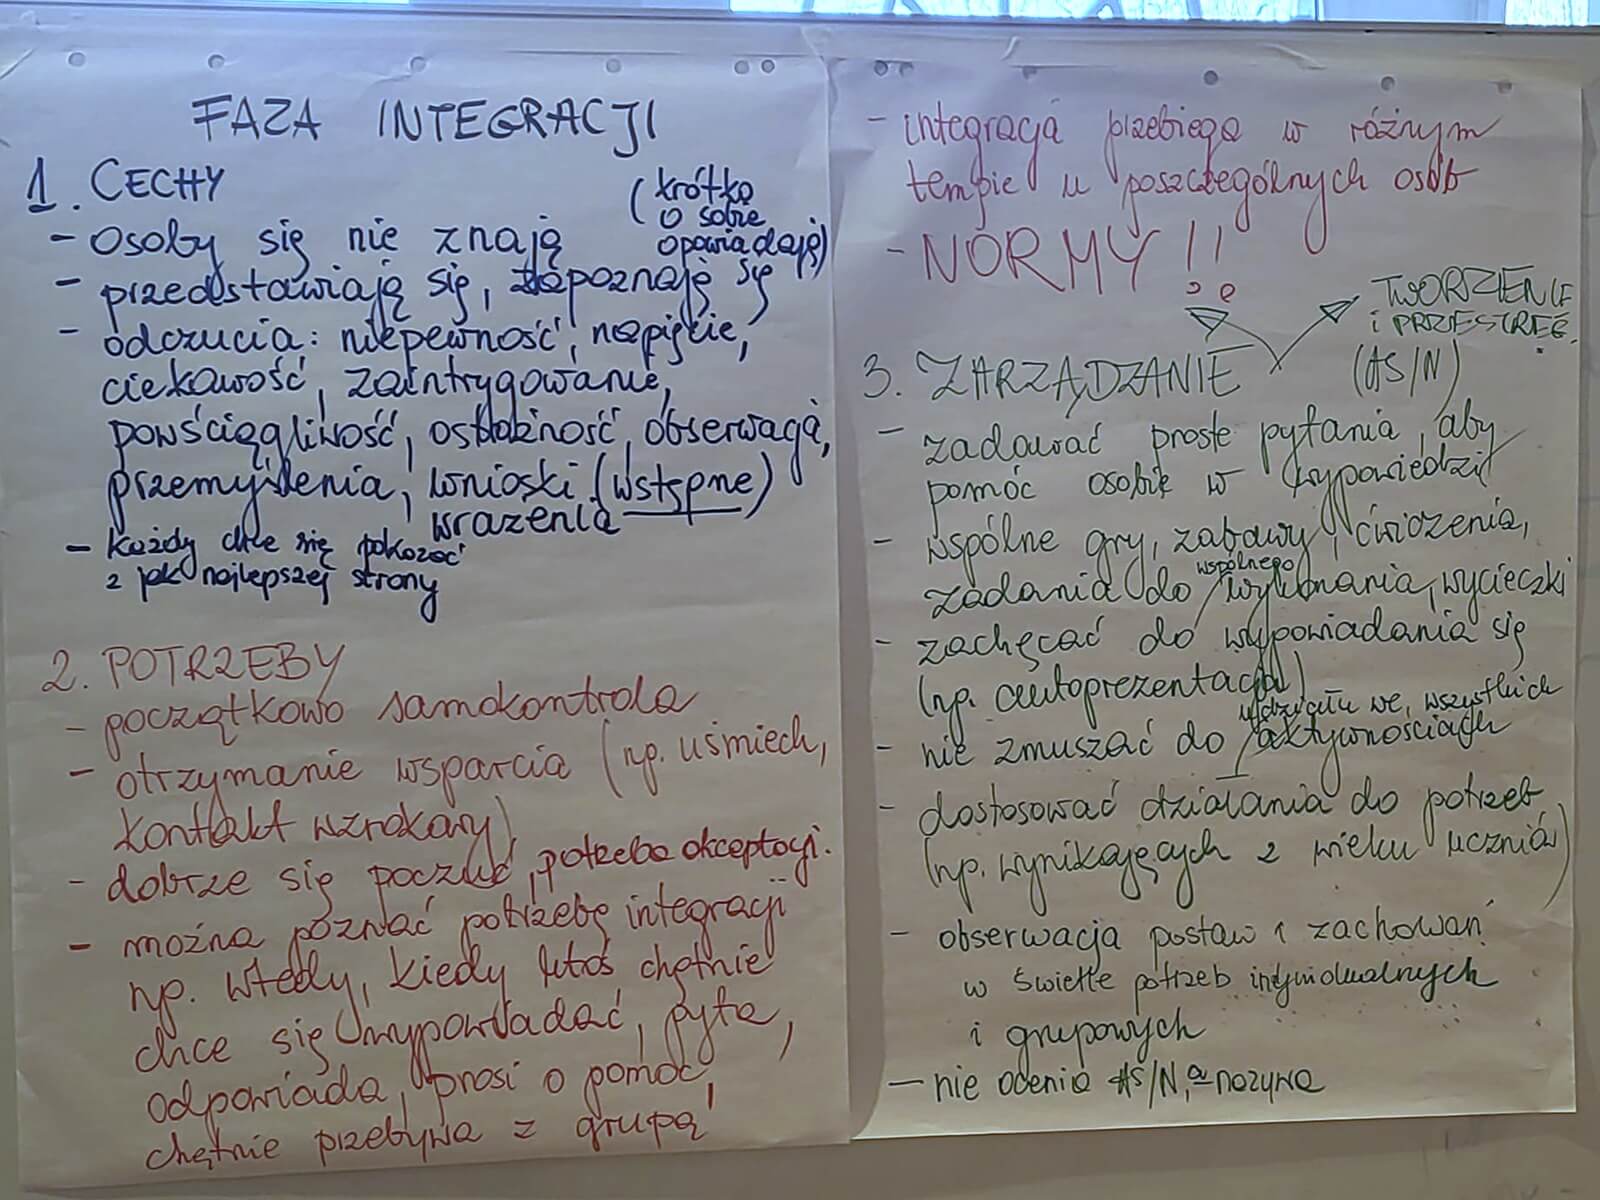 FAZA INTEGRACJI
1. CECHY
(krótko
o sobie
opowiadają)
- osoby się nie znają
- przedstawiają się, zapoznają się
- odczucia: niepewność, napięcie,
ciekawość, zaintrygowanie,
powściągliwość, ostrożność, obserwacja,
przemyślenia, wnioski (wstępne)
wrażenia
- każdy chce się pokazać
z jak najlepszej strony
2. POTRZEBY
- początkowo samokontrola
- otrzymanie wsparcia (np. uśmiech,
kontakt wzrokowy)
- dobrze się poczuć, potrzeba akceptacji.
- można poznać potrzebę integracji
np. wtedy, kiedy ktoś chętnie
chce się wypowiadać, pyta,
odpowiada, prosi o pomoc,
chętnie przebywa z grupą
- integracja przebiega w różnym
tempie u poszczególnych osób
- NORMY !!
TWORZENIE
i PRZESTRZEG.
3. ZARZĄDZANIE (AS/N)
- zadawać proste pytania, aby
pomóc osobie w wypowiedzi
- wspólne gry, zabawy, ćwiczenia,
wspólnego
zadania do wykonania, wycieczki
- zachęcać do wypowiadania się
(np. autoprezentacja)
udziału we wszystkich
- nie zmuszać do aktywnościach
- dostosować działania do potrzeb
(np. wynikających z wieku uczniów)
- obserwacja postaw i zachowań
w świetle potrzeb indywidualnych
i grupowych
- nie ocenia AS/N, a nazywa